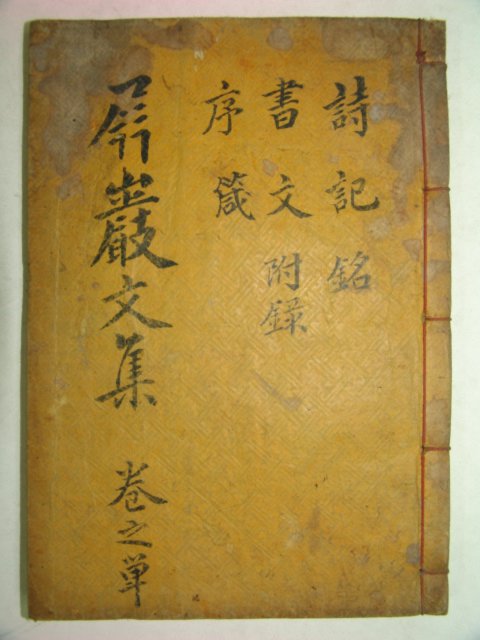 詩記銘
書文附録
序箴
巖文集 卷之単